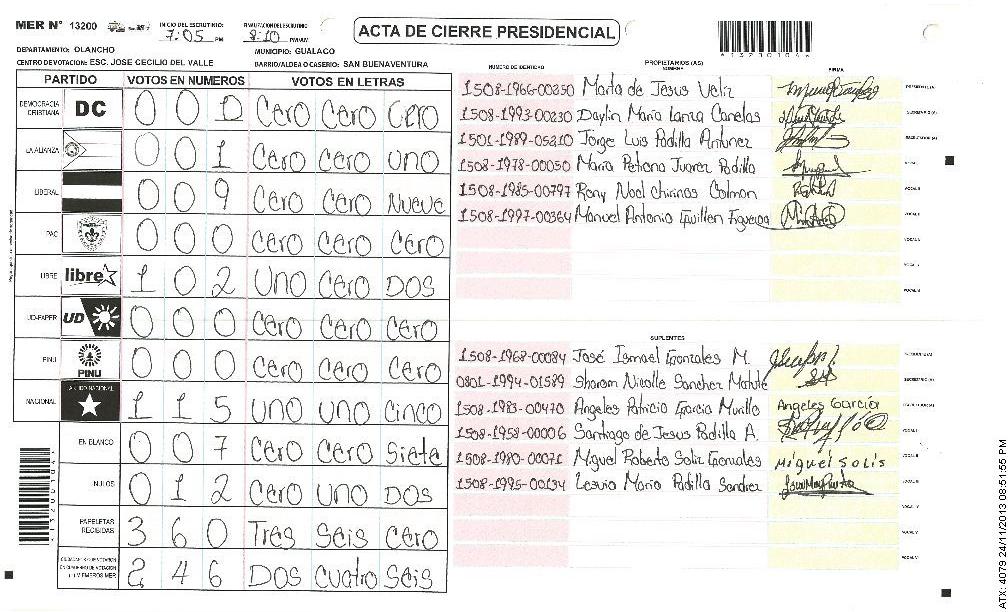 MER N° 13200
INICIO DEL ESCRUTINIO: 7:05 PM
8:10 PM/AM
ACTA DE CIERRE PRESIDENCIAL
DEPARTAMENTO: OLANCHO
MUNICIPIO: GUALACO
CENTRO DE VOTACION: ESC. JOSE CECILIO DEL VALLE
BARRIO/ALDEA O CASERIO: SAN BUENAVENTURA
PARTIDO VOTOS EN NUMEROS VOTOS EN LETRAS
DEMOCRACIA CRISTIANA DC 0 0 0 Cero Cero Cero
LA ALIANZA 0 0 1 Cero Cero UNO
LIBERAL 0 0 9 Cero Cero Nueve
PAC 0 0 0 Cero Cero Cero
LIBRE libre 1 0 2 UNO Cero DOS
UD-FAPER UD 0 0 0 Cero Cero Cero
PINU PINU 0 0 0 Cero Cero Cero
NACIONAL PARTIDO NACIONAL 1 1 5 UNO UNO Cinco
EN BLANCO 0 0 7 Cero Cero Siete
NULOS 0 1 2 Cero UNO DOS
PAPELETAS RECIBIDAS 3 6 0 Tres Seis Cero
2 4 6 DOS Cuatro Seis
NUMERO DE IDENTIDAD PROPIETARIOS (AS) NOMBRE FIRMA
1508-1966-00250 Marta de Jesus Veliz
1508-1993-00230 Daylin Maria Lanza Canelas
1501-1989-05210 Jorge Luis Padilla Antunez
1508-1978-00050 Maria Petrona Juarez Padilla
1508-1985-00797 Rony Noel Chirinos Colmon
1508-1997-00364 Manuel Antonio Guillen Figueroa
SUPLENTES
1508-1968-00084 José Ismael Gonzales M.
0801-1994-01589 Sharom Nicolle Sanchez Matute
1508-1983-00470 Angeles Patricia Garcia Murillo Angeles García
1508-1958-00006 Santiago de Jesus Padilla A.
1508-1980-00071 Miguel Roberto Soliz Gonzales Miguel Solis
1508-1995-00134 Lesvia Maria Padilla Sanchez
ATX: 4079 24/11/2013 08:51:55 PM